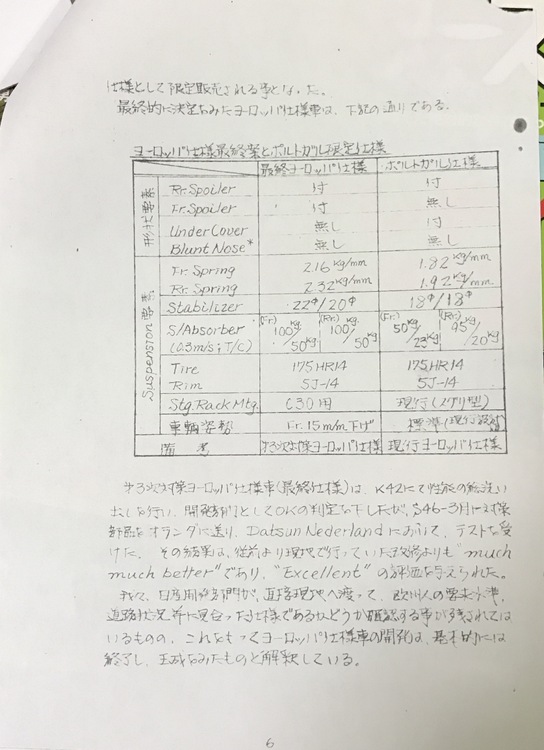 仕様として限定販売される事となった。
最終的に決定をみたヨーロッパ仕様車は、下記の通りである。
ヨーロッパ仕様最終案とポルトガル限定仕様
最終ヨーロッパ仕様 ポルトガル仕様
Rr. Spoiler 付 付
Fr. Spoiler 付 無し
Under Cover 無し 付
Blunt Nose* 無し 無し
Suspension 要素
Fr. Spring 2.16 kg/mm 1.82 kg/mm
Rr. Spring 2.32 kg/mm 1.92 kg/mm
Stabilizer 22φ/20φ 18φ/18φ
S/Absorber (Fr.) 100kg/50kg (Rr.) 100kg/50kg (Fr.) 50kg/23kg (Rr.) 95kg/20kg
(0.3m/s; T/C)
Tire 175HR14 175HR14
Rim 5J-14 5J-14
Stg. Rack Mtg. C30用 現行(スグリ型)
車輌姿勢 Fr. 15m/m下げ 標準(現行設計)
備考 第3次対策ヨーロッパ仕様 現行ヨーロッパ仕様
第3次対策ヨーロッパ仕様車(最終仕様)は、K42にて性能の総洗い
出しを行い、開発部門としてOKの判定を下したが、S46-3月に対策
部品をオランダに送り、Datsun Nederlandにおいて、テストを受
けた。その結果は、従前より現地で行っていた改修よりも"much
much better"であり、"Excellent"の評価を与えられた。
我々、日産開発部門が、直接現地へ渡って、欧州人の要求水準、
道路状況等に見合った仕様であるかどうか確認する事が残されては
いるものの、これをもってヨーロッパ仕様車の開発は、基本的には
終了し、完成をみたものと解釈している。
6